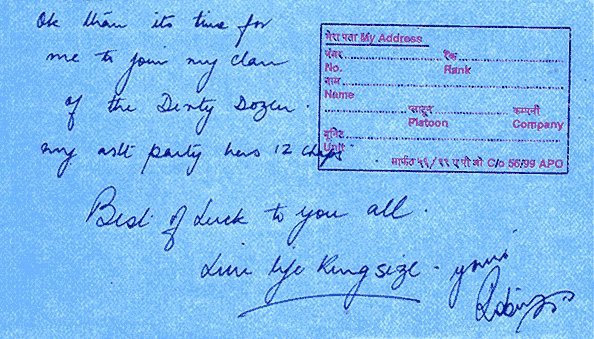 Ok than its time for
me to join my clan
of the Dirty Dozen.
my aslt party has 12 chaps
Best of Luck to you all.
Live life Kingsize - yours
Robin
मेरा पता My Address
नंबर................ रैंक................
No. Rank
नाम................
Name
................ प्लाटून ................ कम्पनी
Platoon Company
यूनिट................
Unit
मार्फत ५६/९९ ए पी ओ C/o 56/99 APO